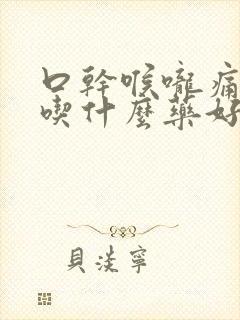 口幹喉嚨痛
喫什麼藥好
貝淡寧